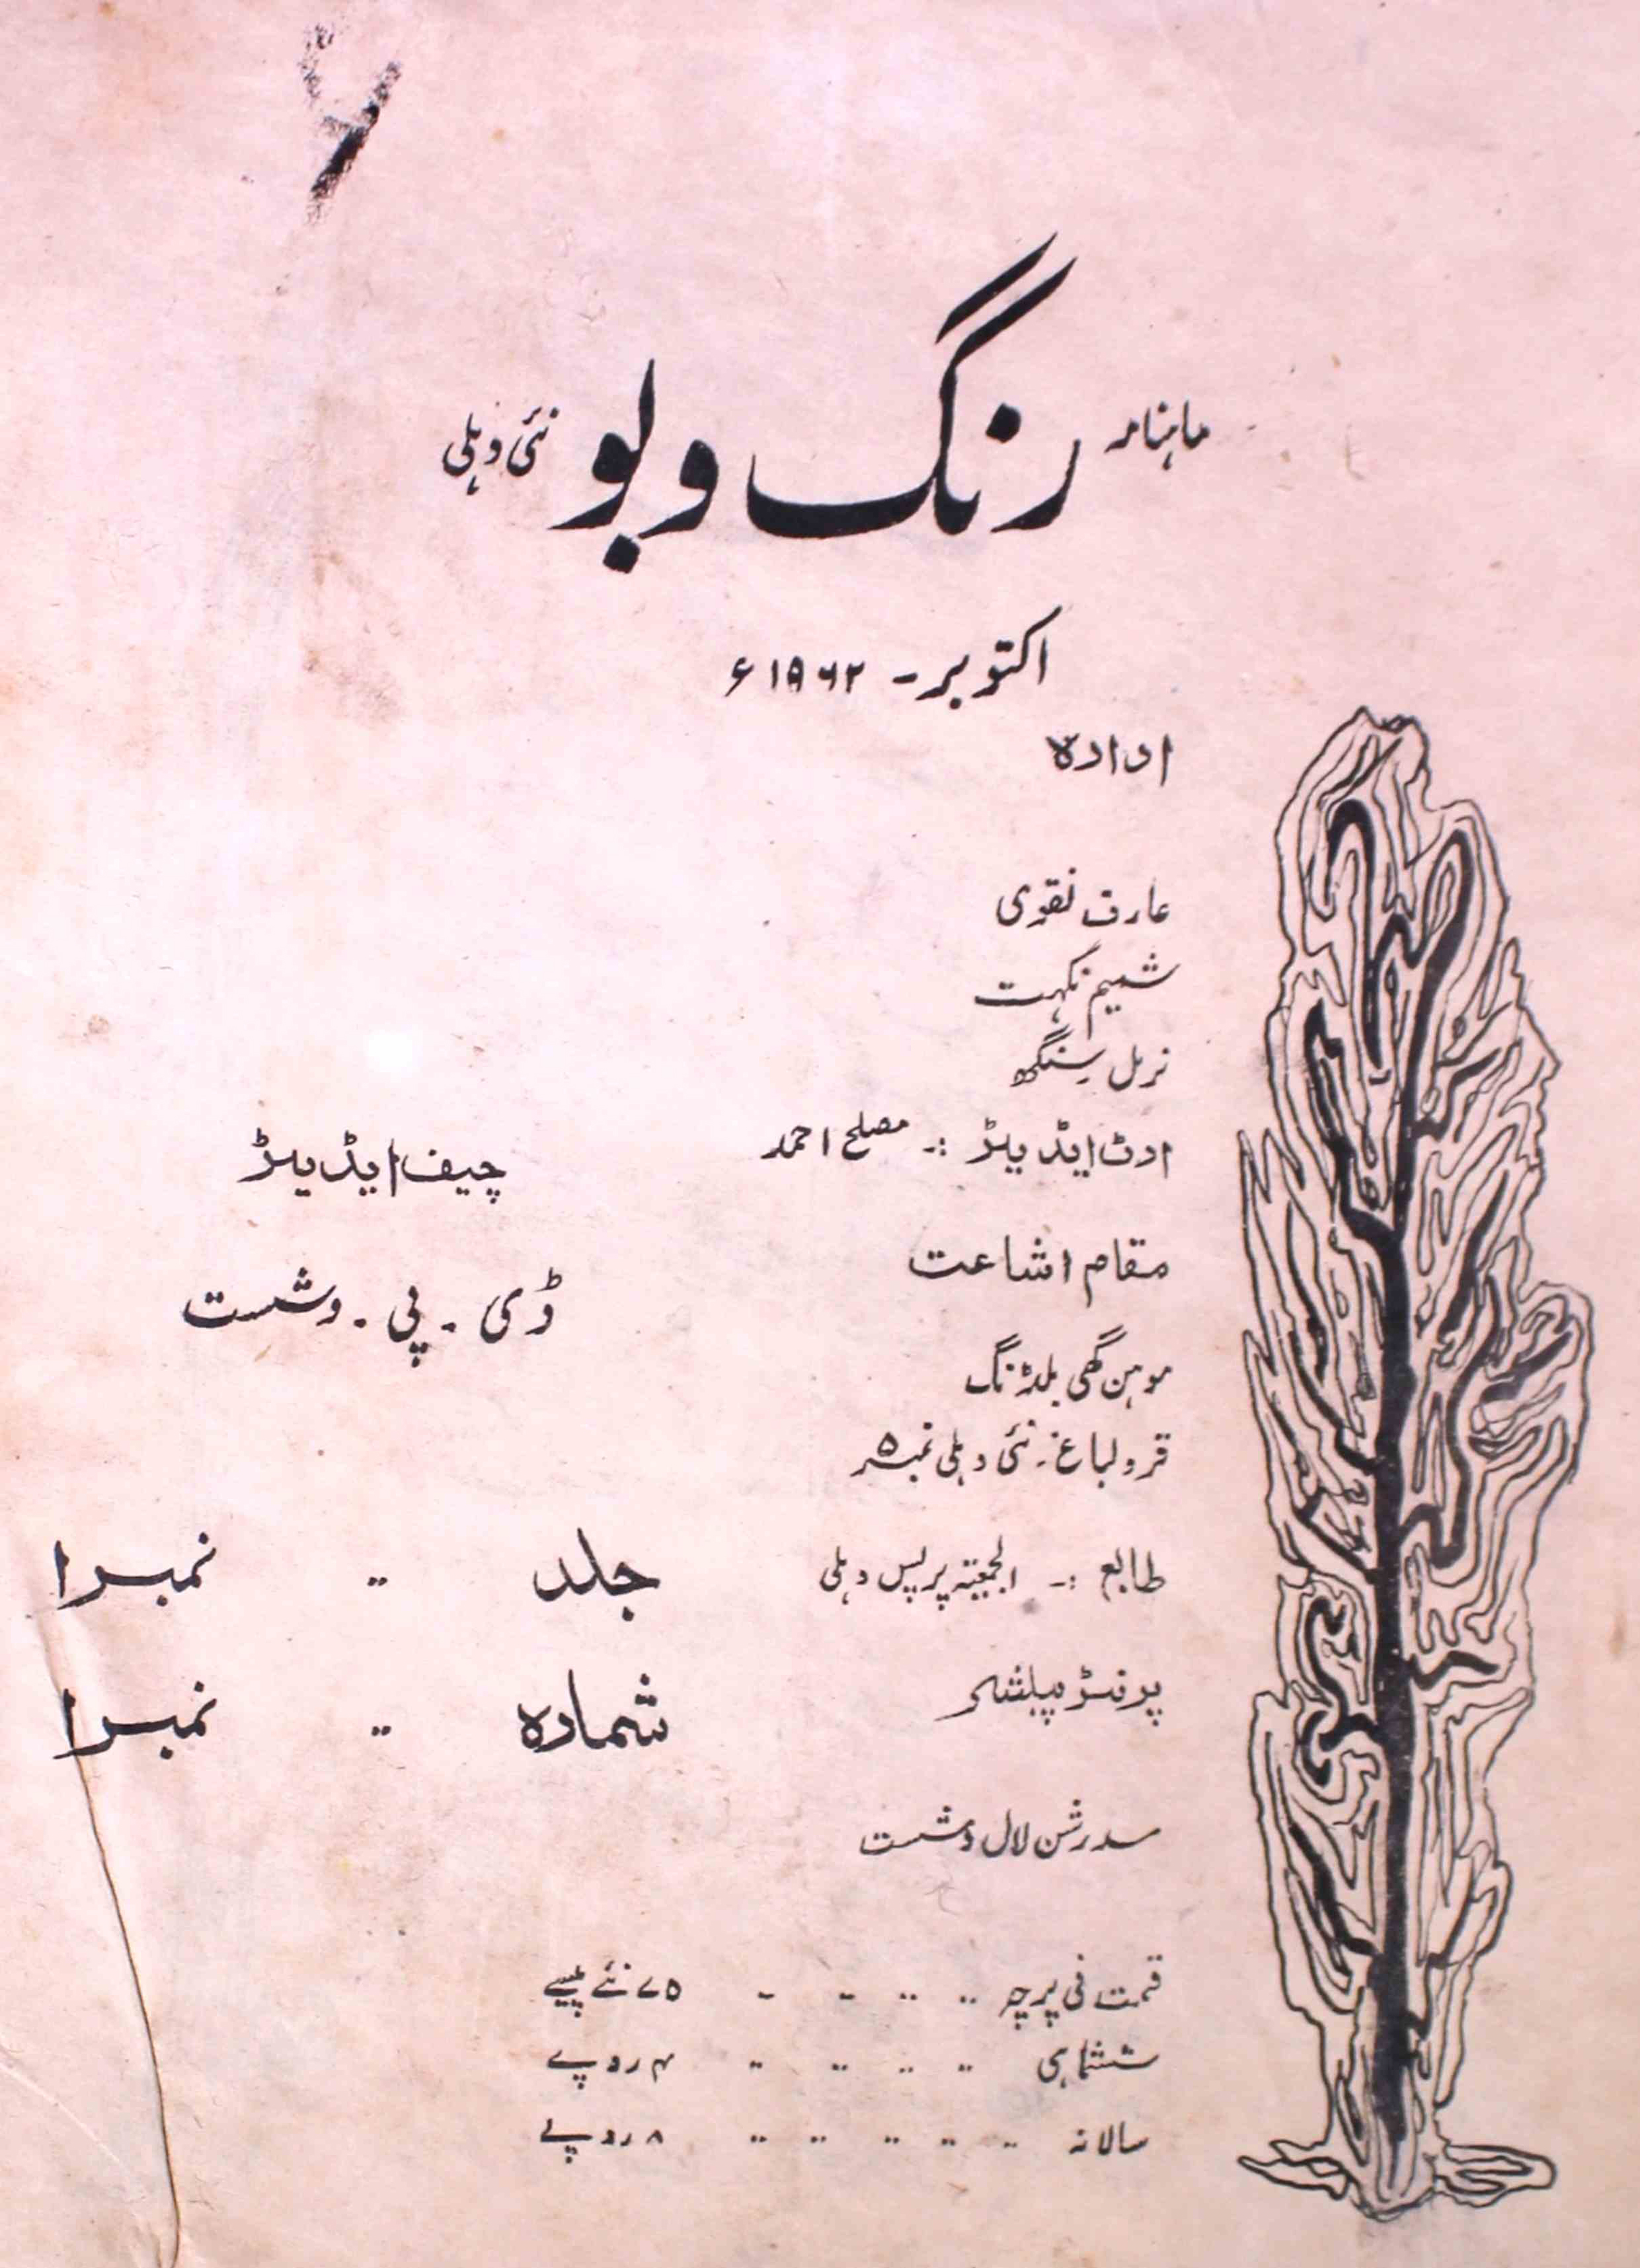 ماہنامہ رنگ و بو نئی دہلی
اکتوبر - ۱۹۶۲ء
ادارہ
عارف نقوی
شمیم نکہت
نرمل سنگھ
ارٹ ایڈیٹر :- مصلح احمد
چیف ایڈیٹر
ڈی - پی - وشست
مقام اشاعت
موہن گھی بلڈنگ
قرولباغ - نئی دہلی نمبر ۵
طابع :- الجمعیۃ پریس دہلی
پرنٹر پبلشر
سدرشن لال وشست
جلد .. نمبر ۱
شمارہ .. نمبر ۱
قیمت فی پرچہ .. .. - - ۷۵ نئے پیسے
ششماہی .. .. .. .. ۴ روپے
سالانہ .. .. .. .. .. ۸ روپے